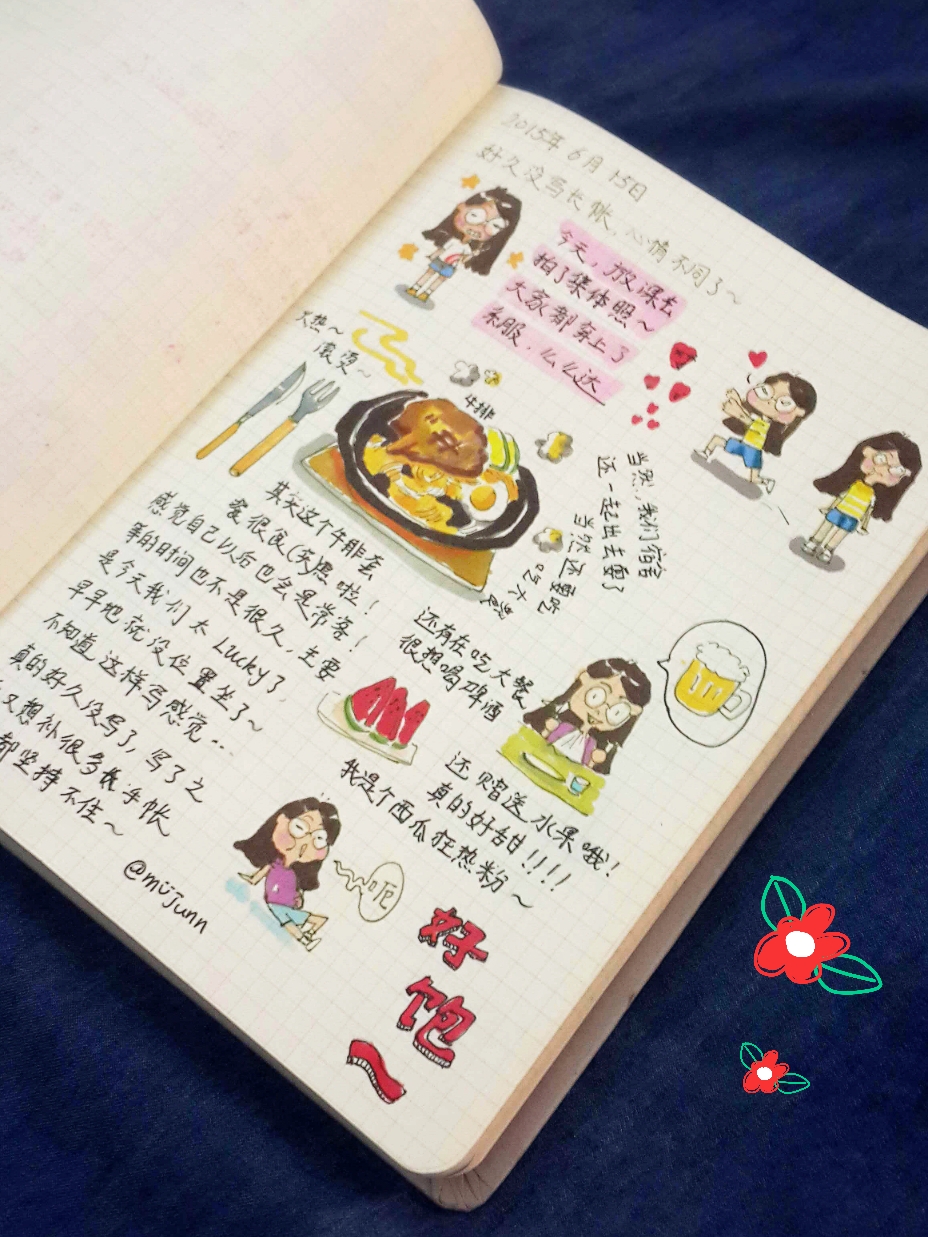 2015年6月15日
好久没写长帐，心情不同了～
今天，放课去
拍了集体照～
大家都穿上了
系服，么么达
天热～
滚烫～
牛排
当然，我们宿舍
还一起出去耍了
当然还要吃
吃大餐
其实这个牛排套
餐很良(实惠啦！
感觉自己以后也会是常客！
等的时间也不是很久，主要
是今天我们太Lucky了，
早早地就没位置坐了～
不知道这样写感觉...
真的好久没写了，写了之
又想补很多长手帐
都坚持不住～
@mujunn
还有在吃大餐
很想喝啤酒
还赠送水果哦！
真的好甜！！！！
我是个西瓜狂热粉～
呃
好
饱
～